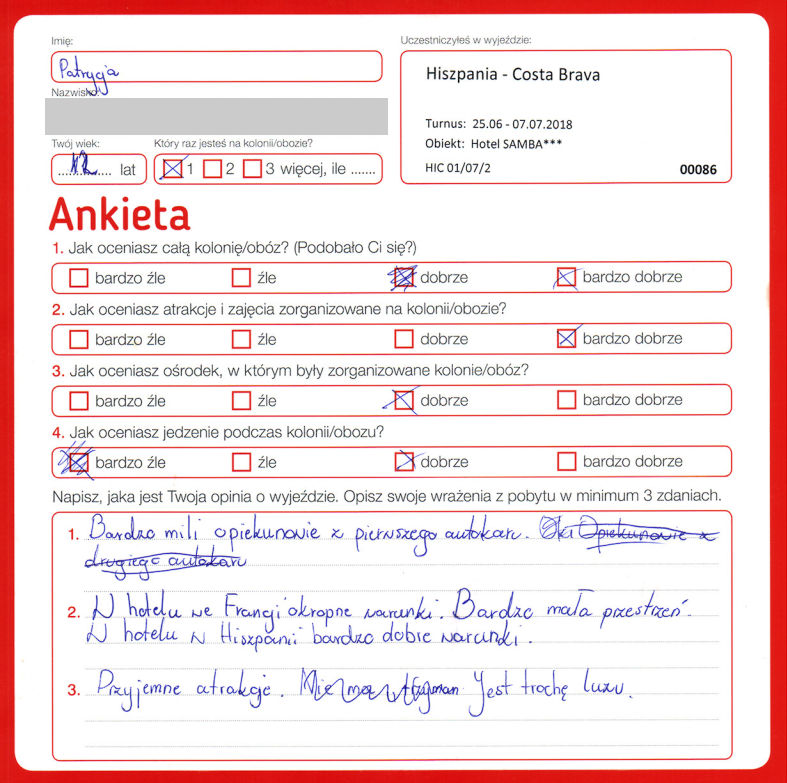 Imię:
Patrycja
Nazwisko:
Uczestniczyłeś w wyjeździe:
Hiszpania - Costa Brava
Turnus: 25.06 - 07.07.2018
Obiekt: Hotel SAMBA***
HIC 01/07/2
00086
Twój wiek:
Który raz jesteś na kolonii/obozie?
12 lat
1 2 3 więcej, ile .......
Ankieta
1. Jak oceniasz całą kolonię/obóz? (Podobało Ci się?)
bardzo źle źle dobrze bardzo dobrze
2. Jak oceniasz atrakcje i zajęcia zorganizowane na kolonii/obozie?
bardzo źle źle dobrze bardzo dobrze
3. Jak oceniasz ośrodek, w którym były zorganizowane kolonie/obóz?
bardzo źle źle dobrze bardzo dobrze
4. Jak oceniasz jedzenie podczas kolonii/obozu?
bardzo źle źle dobrze bardzo dobrze
Napisz, jaka jest Twoja opinia o wyjeździe. Opisz swoje wrażenia z pobytu w minimum 3 zdaniach.
1. Bardzo mili opiekunowie z pierwszego autokaru. Opiekunowie z
drugiego autokaru
2. W hotelu we Francji okropne warunki. Bardzo mała przestrzeń.
W hotelu w Hiszpanii bardzo dobre warunki.
3. Przyjemne atrakcje. Nie Jest trochę luzu.